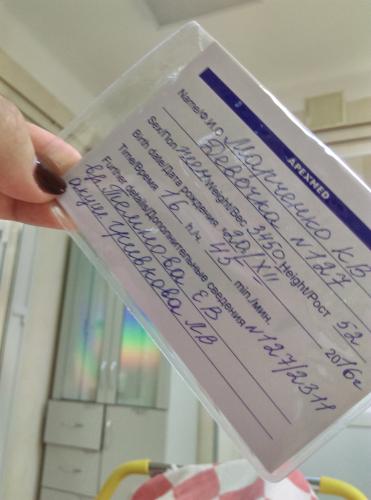 APEXMED
Name/Ф.И.О Марченко К.В
Девочка N 127
Sex/Пол жен Weight/Вес 3150 Height/Рост 52
Birth date/Дата рождения «20/XII 2016г
Time/Время 16 h./ч. 45 min./мин.
Further details/Дополнительные сведения N 127/2311
вр. Е.В
акуш ЛВ